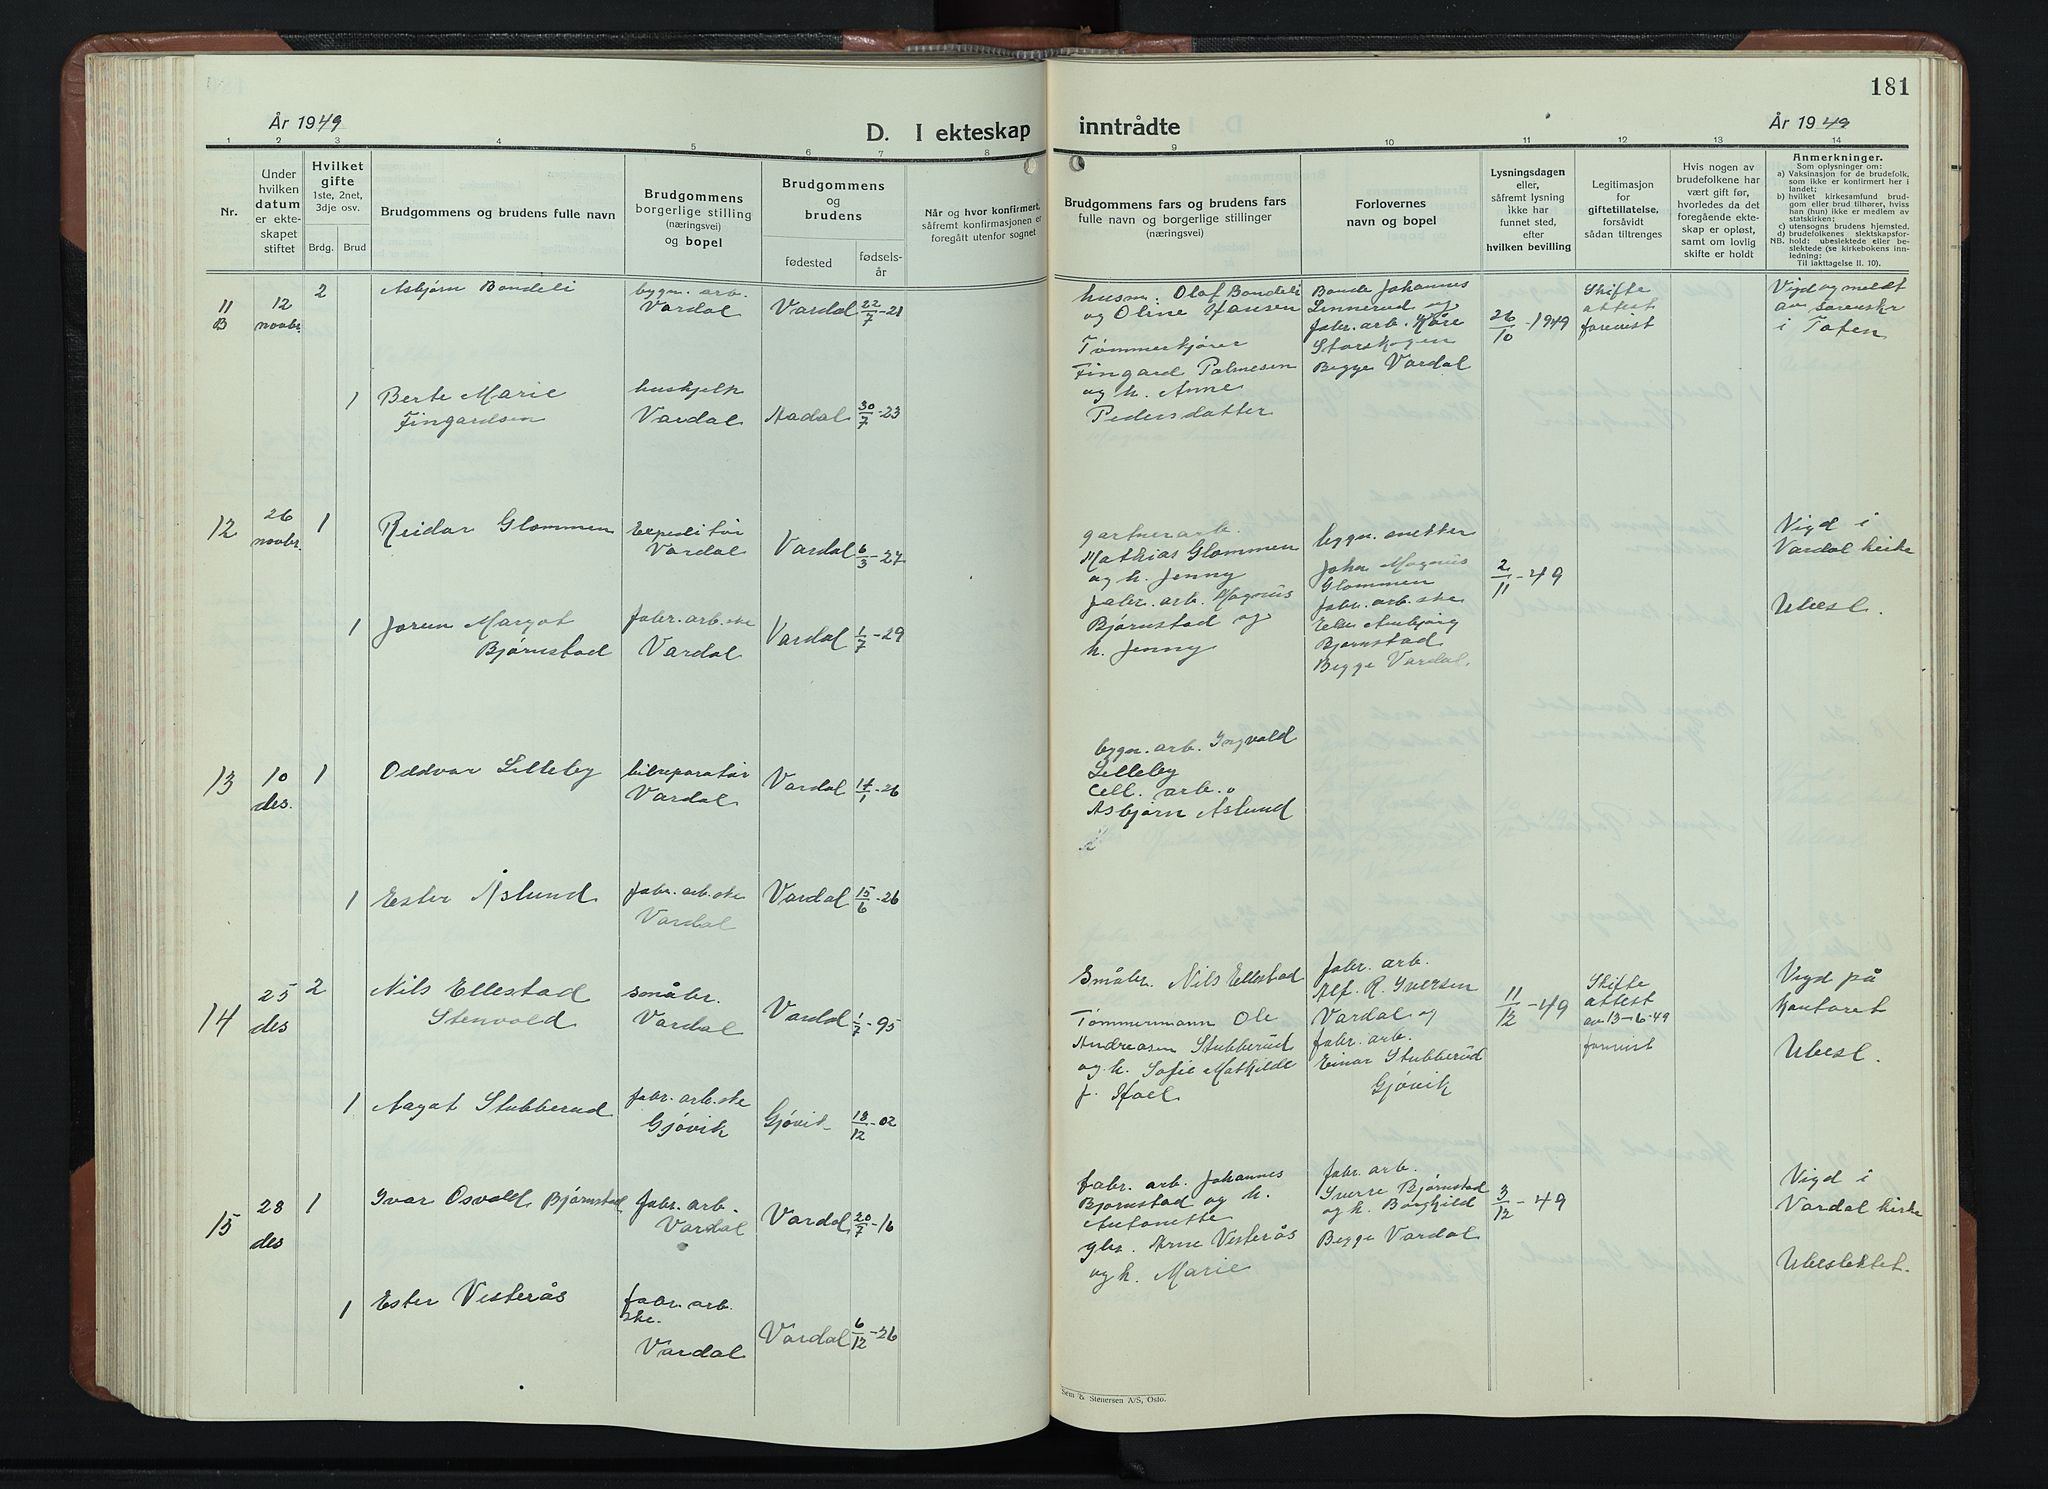 181
År 1949
D. I ekteskap
inntrådte
År 1949
1 2 3 4 5 6 7 8 9 10 11 12 13 14
Nr.
Under
hvilken
datum
er ekte-
skapet
stiftet
Hvilket
gifte
1ste, 2net,
3dje osv.
Brdg. Brud
Brudgommens og brudens fulle navn
Brudgommens
borgerlige stilling
(næringsvei)
og bopel
Brudgommens
og
brudens
fødested
fødsels-
år
Når og hvor konfirmert,
såfremt konfirmasjonen er
foregått utenfor sognet
Brudgommens fars og brudens fars
fulle navn og borgerlige stillinger
(næringsvei)
Forlovernes
navn og bopel
Lysningsdagen
eller,
såfremt lysning
ikke har
funnet sted,
efter
hvilken bevilling
Legitimasjon
for
giftetillatelse,
forsåvidt
sådan tiltrenges
Hvis nogen av
brudefolkene har
vært gift før,
hvorledes da det
foregående ekte-
skap er opløst,
samt om lovlig
skifte er holdt
Anmerkninger.
Som oplysninger om:
a) Vaksinasjon for de brudefolk,
som ikke er konfirmert her i
landet;
b) hvilket kirkesamfund brud-
gom eller brud tilhører, hviss
han (hun) ikke er medlem av
statskirken;
c) utensogns brudens hjemsted.
d) brudefolkenes slektskapsfor-
NB. hold: ubeslektede eller be-
slektede (se kirkebokens inn-
ledning:
Til iakttagelse II. 10).
11
B
12
novbr.
2
Asbjørn Bondeli
bygn. arb.
Vardal
Vardal
22/7-21
husm: Olaf Bondeli
og Oline Hansen
Tømmerkjører
Fingard Palmesen
og h. Anne
Pedersdatter
Bonde Johannes
Linnerud og
fabr. arb. Kåre
Storskogen
Begge Vardal
26/10-1949
Skifte
attest
forevist
Vigd og meldt
av sorenskr
i Toten
1
Berte Marie
Fingardsen
hushjelp
Vardal
Aadal
30/7-23
12
26
novbr.
1
Reidar Glommen
Expeditør
Vardal
Vardal
6/3-27
gartnerarb.
Mathias Glommen
og h. Jenny
fabr. arb. Magnus
Bjørnstad og
h. Jenny
bygn. snekker
Johan Magnus
Glommen
fabr. arb. ske
Else Annbjørg
Bjørnstad
Begge Vardal.
2/11-49
Vigd i
Vardal kirke
Ubesl.
1
Jorun Margot
Bjørnstad
fabr. arb. ske
Vardal
Vardal
1/7-29
13
10
des.
1
Oddvar Lilleby
bilreparatør
Vardal
Vardal
14/1-26
bygn. arb. Ingvald
Lilleby
Cell. arb.
Asbjørn Aslund
1
Ester Åslund
fabr. arb. ske
Vardal
Vardal
15/6-26
14
25
des
2
Nils Ellestad
Stenvold
småbr.
Vardal
Vardal
1/7-95
Småbr. Nils Ellestad
Tømmermann Ole
Andreasen Stubberud
og h. Sofie Mathilde
f. Hoel
fabr. arb.
Alf. R. Iversen
Vardal og
fabr. arb.
Einar Stubberud
Gjøvik
11/12-49
Skifte
attest
av 13-6-49
forevist
Vigd på
kontoret
Ubesl.
1
Aagot Stubberud
fabr. arb. ske
Gjøvik
Gjøvik
18/12-02
15
28
des
1
Ivar Osvald Bjørnstad
fabr. arb.
Vardal
Vardal
20/7-16
fabr. arb. Johannes
Bjørnstad og h.
Antonette
gbr. Arne Vesterås
og h. Marie
fabr. arb.
Sverre Bjørnstad
og h. Borghild
Begge Vardal
3/12-49
Vigd i
Vardal kirke
Ubeslektet.
1
Ester Vesterås
fabr. arb.
ske.
Vardal
Vardal
6/12-26
Sem & Stenersen A/S, Oslo.